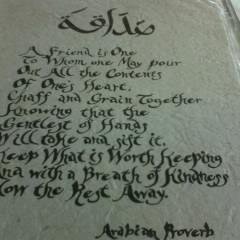 صداقة
A Friend is One
To Whom one May pour
Out All the Contents
Of One's Heart,
Chaff and Grain Together
Knowing that the
Gentlest of Hands
Will take and sift it,
Keep What is Worth Keeping
And with a Breath of Kindness
Blow the Rest Away.
Arabian Proverb